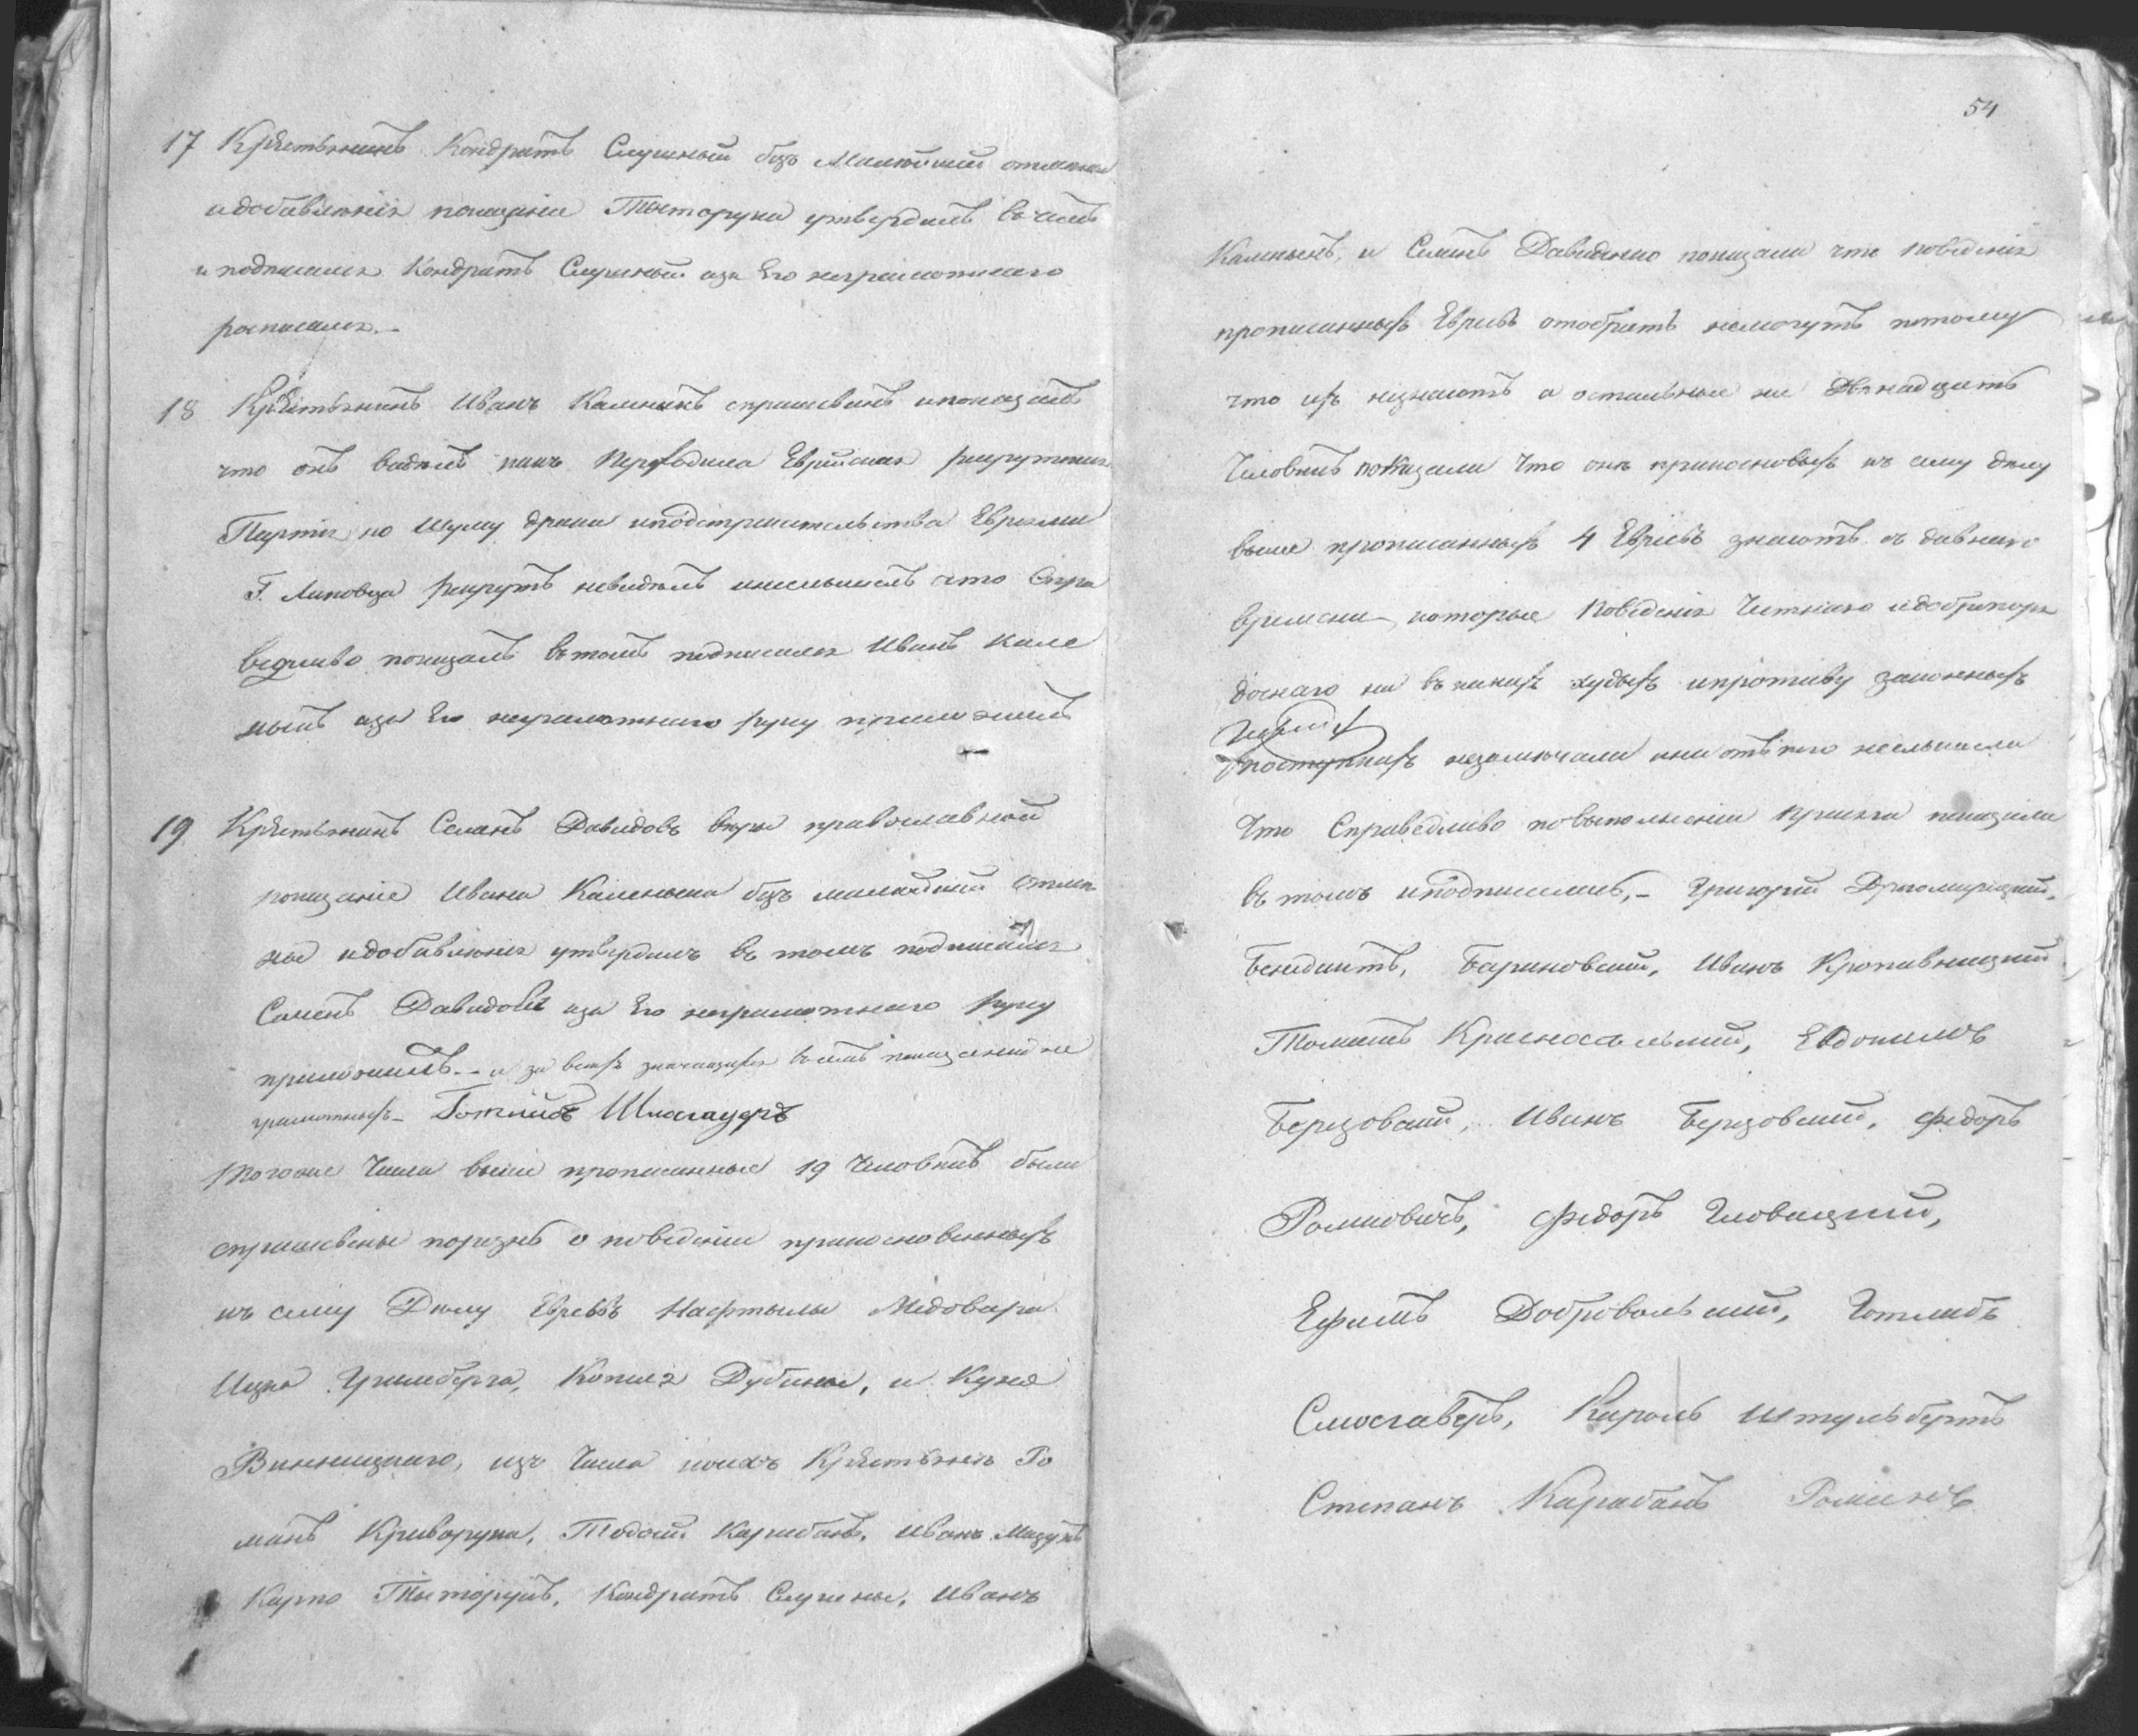 17 Крестьянинъ Кондратъ Слученый безъ Малейшей отмены
и добавленія показаніе Тытарука утвердилъ въ чемъ
и подписался Кондратъ Слученый а за Его неграмотнаго
росписался. –
18 Крестьянинъ Иванъ Каленыкъ спрашеванъ и показалъ
что онъ виделъ какъ Переводила Еврейская рекрутская
Партія но Шуму драки и подстрекательства Евреями
Г. Липовца рекрутъ невиделъ и неслышалъ что Спра
ведливо показалъ въ томъ подписался Иванъ Кале
ныкъ а за Его неграмотнаго руку приложилъ
19 Крестьянинъ Семенъ Давидовъ веры православной
показаніе Ивана Каленыка безъ малейшей отме
ны и добавленія утвердилъ въ томъ подписался
Семенъ Давидовъ а за Его неграмотнаго руку
приложилъ. – и за всехъ значащихся въ семъ показаній не
грамотныхъ – Готлибъ Шлосгауеръ
Того же Числа выше прописанные 19 Человекъ были
спрашеваны порознь о поведеніи прикосновенныхъ
къ сему Делу Евреевъ Нафтылы Медовара
Ицка Гринберга, Копеля Дубины, и Куня
Винницкаго, изъ Числа коихъ Крестьяне Ро
манъ Криворука, Тодосій Карабанъ, Иванъ Мазуръ
Карпо Тытарукъ, Кондратъ Случены, Иванъ
54
Каленыкъ, и Семенъ Давиденко показали что поведенія
прописанныхъ Евреевъ отобрить немогутъ потому
что ихъ незнаютъ а остальные же Двенадцать
Человекъ показали Что они прикосновенныхъ къ сему делу
выше прописанныхъ 4 Евреевъ знаютъ съ давняго
времени которые Поведенія Честнаго и добропоря
дочнаго ни въ какихъ худыхъ и противу законныхъ
поступкахъ незамечали и ни отъ кого неслышали
Что Справедливо по выполненіи присяги показали
въ томъ и подписались, – Григорій Драгомирецкій,
Бенедиктъ, Барановскій, Иванъ Кропивницкій
Томашъ Красносельскій, Евдокимъ
Березовскій, Иванъ Березовскій, Федоръ
Романовичъ, Федоръ Гловацкій,
Ефимъ Добровольскій, Готлибъ
Слюсгаверъ, Кароль Штульбертъ
Степанъ Карабанъ Романъ